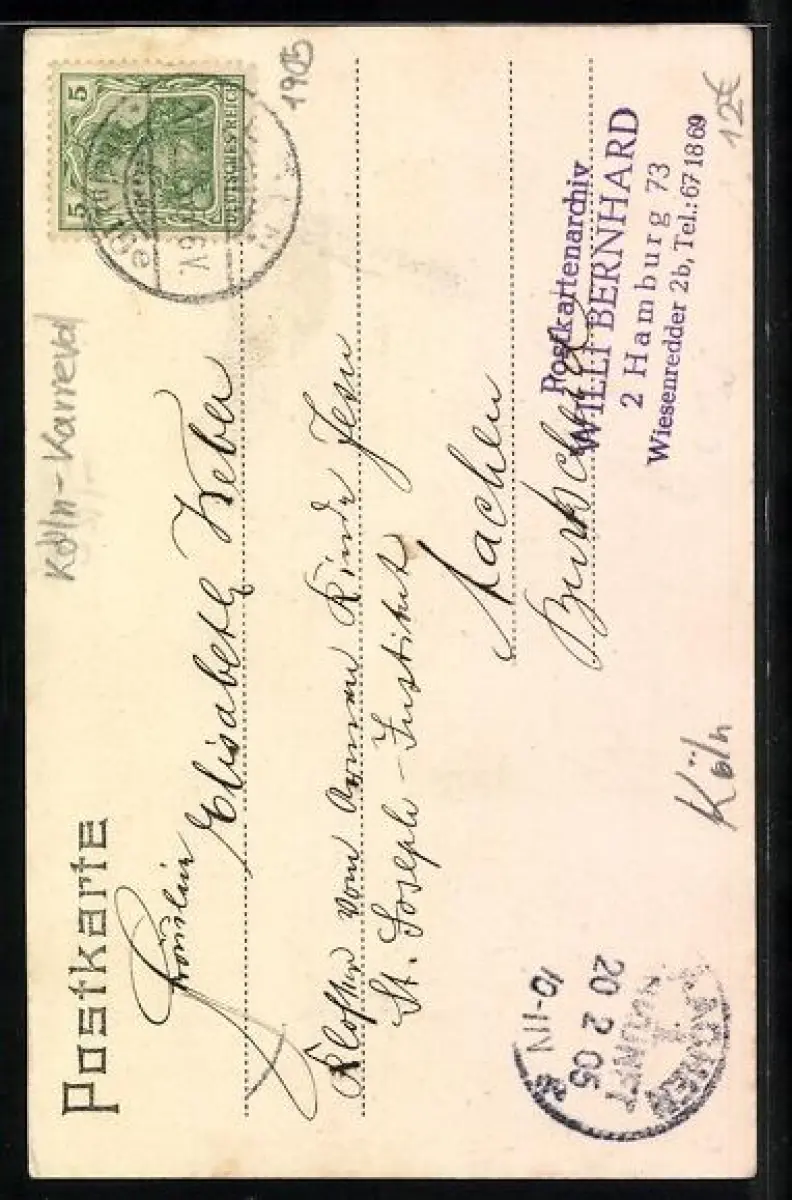 Postkarte
5 5
DEUTSCHES REICH
6 V.
1905
12€
Köln-Karneval
Fräulein
Elisabeth Weber
Kloster vom Armen Kinde Jesu
St. Joseph-Institut
Aachen
Burtscheid
Postkartenarchiv
WILLI BERNHARD
2 Hamburg 73
Wiesenredder 2b, Tel.: 67 18 69
Köln
AACHEN
1
ANKUNFT
20 2 05
10-11V